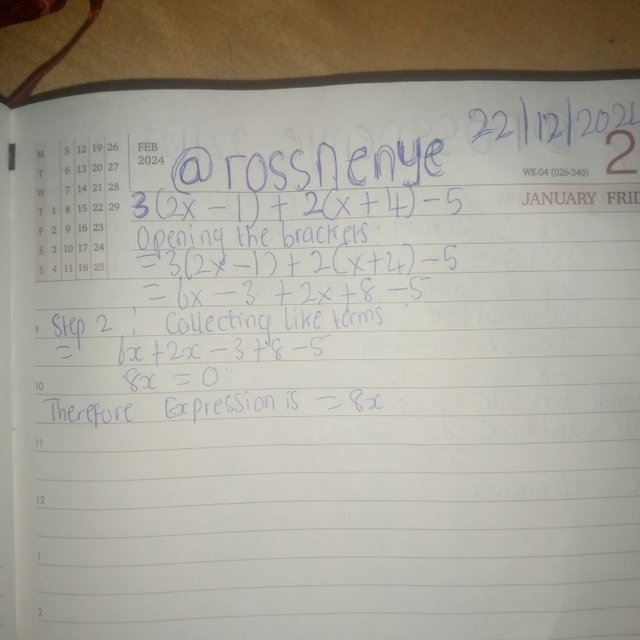 FEB
2024
M 5 12 19 26
T 6 13 20 27
W 7 14 21 28
T 1 8 15 22 29
F 2 9 16 23
S 3 10 17 24
S 4 11 18 25
22/12/202
@rossnenye
WK-04 (026-340)
2
JANUARY FRID
3(2x - 1) + 2(x + 4) - 5
Opening the brackers:
= 3(2x - 1) + 2(x + 4) - 5
= 6x - 3 + 2x + 8 - 5
9 Step 2 : Collecting like terms
= 6x + 2x - 3 + 8 - 5
10
8x = 0
Therefore Expression is = 8x
11
12
1
2